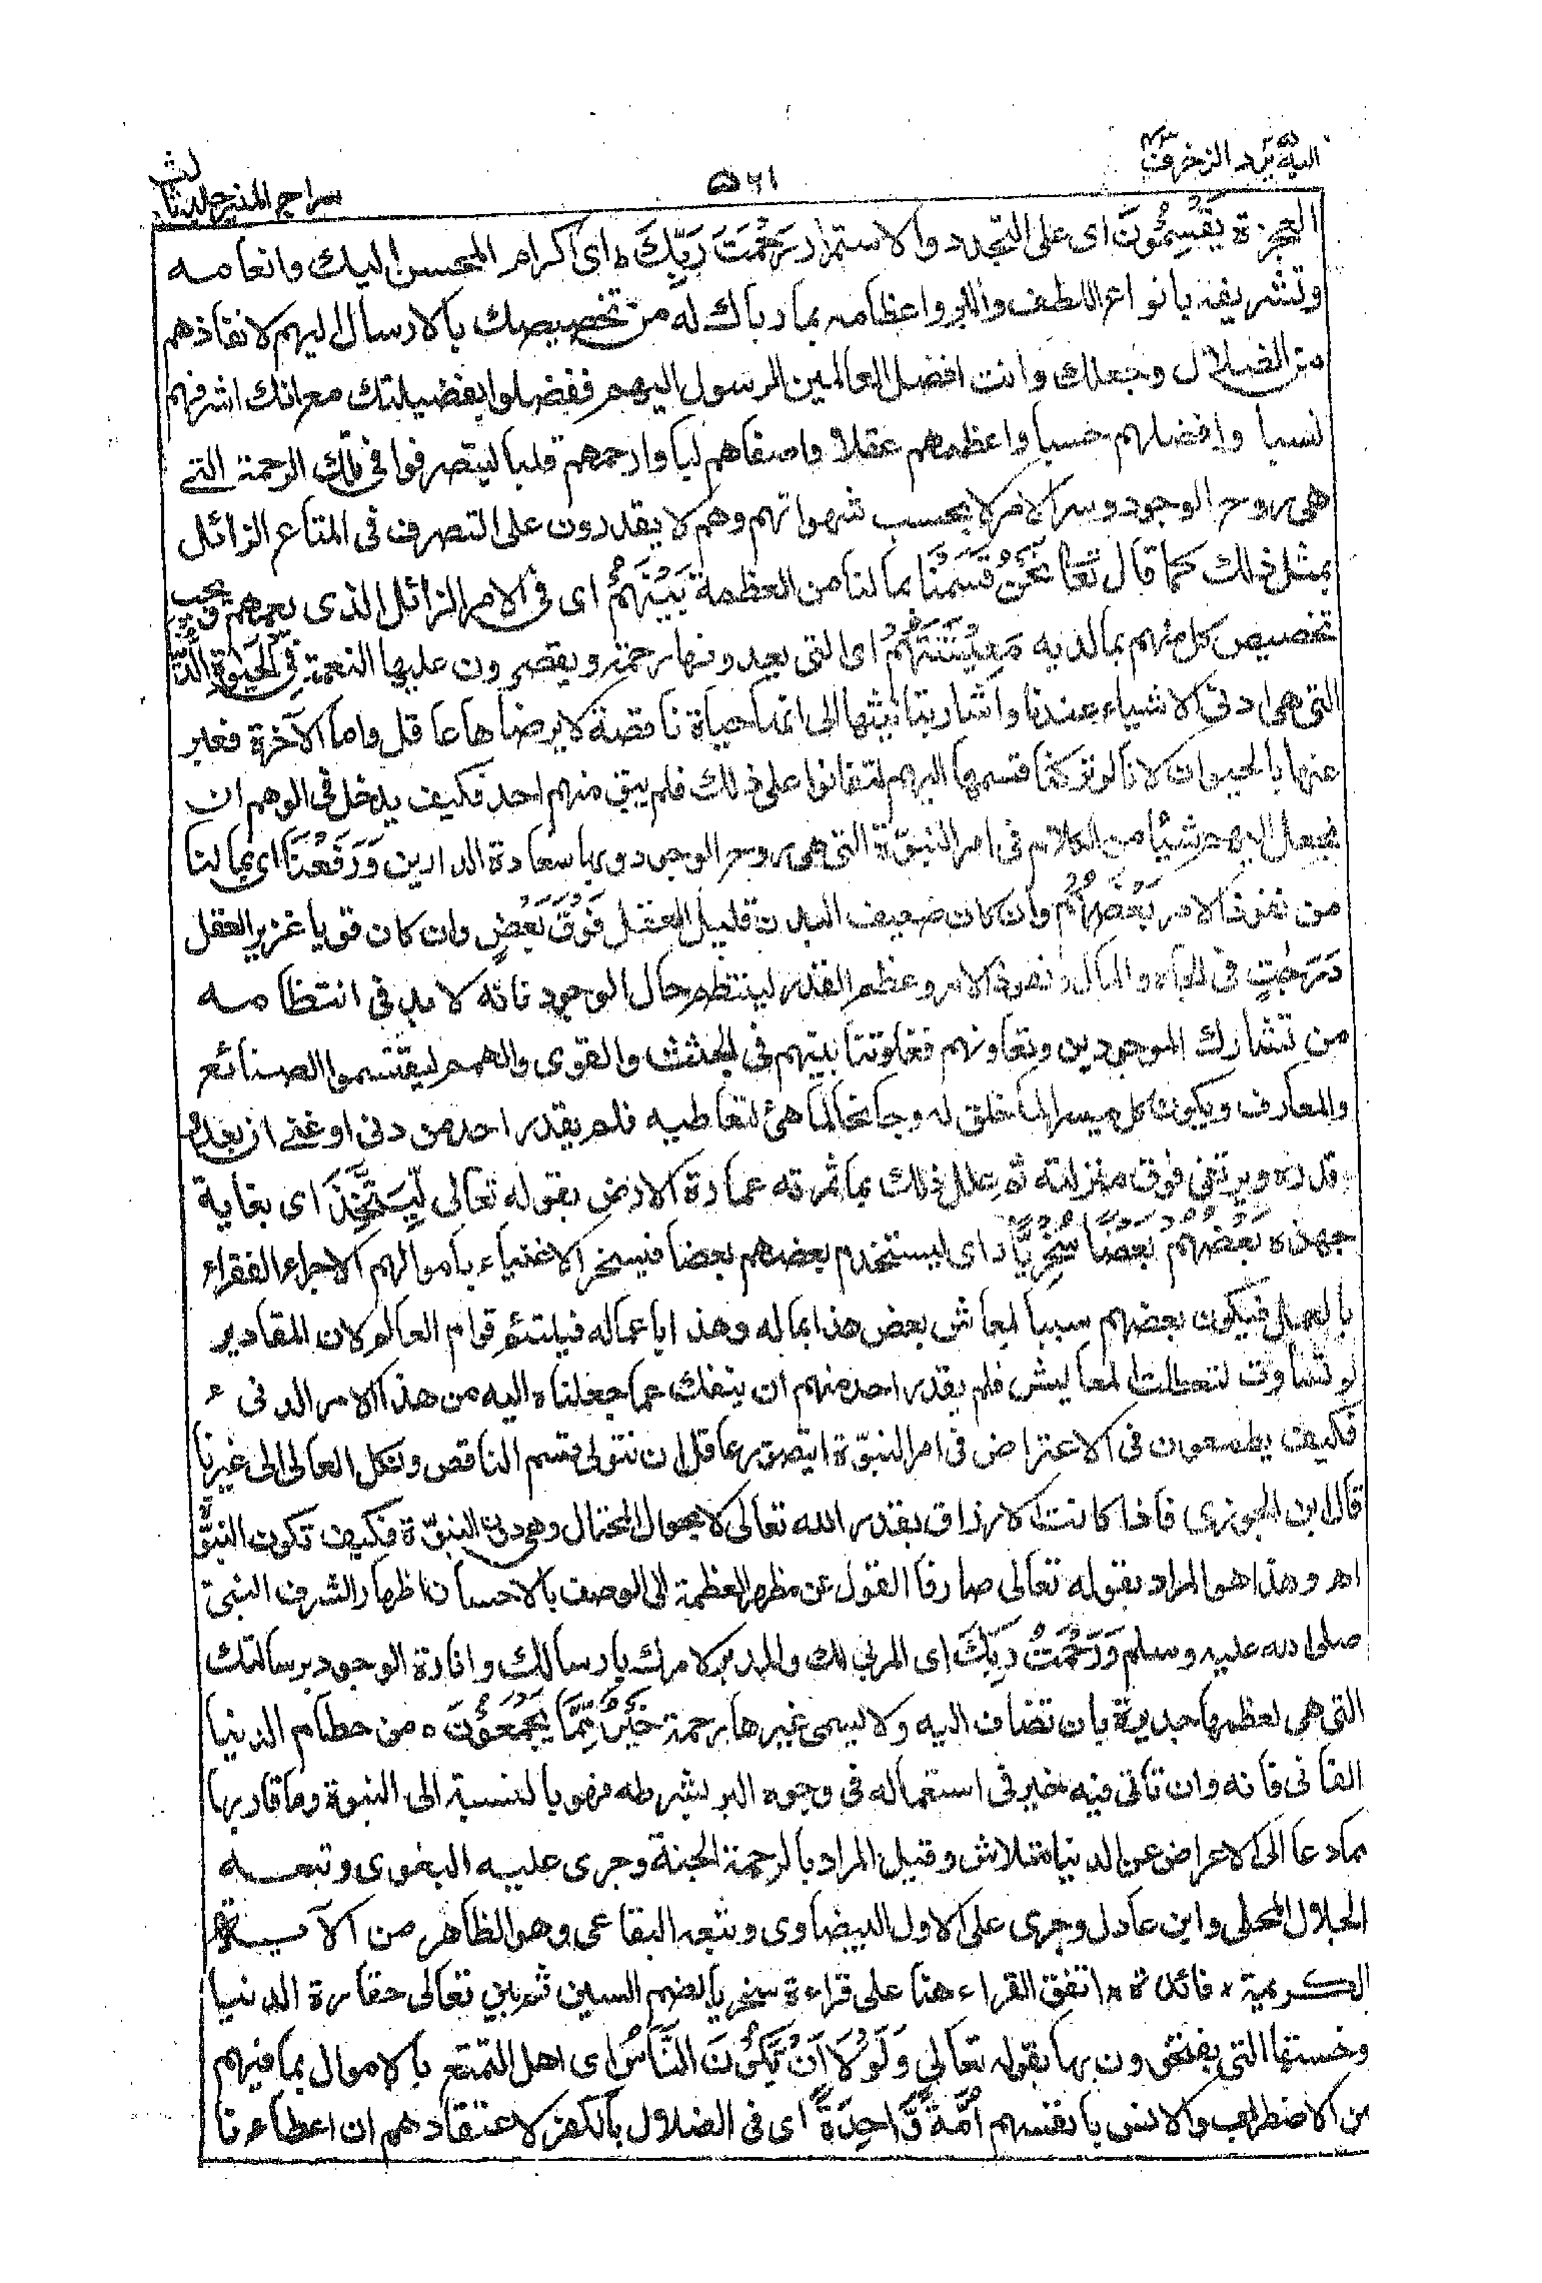 اليه يرد الزخرف ٤٣
٥٦١
سراج المنير جلد ثالث
العجزة يَقْسِمُونَ اى على التجدد والاستمرار رَحْمَتَ رَبِّكَ ط اى اكرام المحسن اليك وانعامه
وتشريفه بانواع اللطف والبر واعظامه بما رباك له من تخصيصك بالارسال اليهم لانقاذهم
من الضلال وجعلك وانت افضل العالمين الرسول اليهم ففضلوا بفضيلتك مع انك اشرفهم
نسبا وافضلهم حسبا واعظمهم عقلا واصفاهم لبا وارحمهم قلبا ليتصرفوا فى تلك الرحمة التى
هى روح الوجود وسر الامر لا بحسب شهواتهم وهم لا يقدرون على التصرف فى المتاع الزائل
بمثل ذلك كما قال تعا نَحْنُ قَسَمْنَا بما لنا من العظمة بَيْنَهُمْ اى فى الامر الزائل الذى يعمهم ويجب
تخصيص كل منهم بما لديه مَعِيْشَتَهُمْ اى التى يعدونها رحمة ويقصرون عليها النعمة فِى الْحَيٰوةِ الدُّنْيَا
التى هى ادنى الاشياء عندنا واشار بتانيثها الى انها حياة ناقصة لا يرضاها عاقل واما الآخرة فعبر
عنها بالحيوان لانا لو تركنا قسمها اليهم لتفانوا على ذلك فلم يبق منهم احد فكيف يدخل فى الوهم ان
نجعل اليهم شيئا من الكلام فى امر النبوّة التى هى روح الوجود وبها سعادة الدارين وَرَفَعْنَا اى بما لنا
من نفوذ الامر بَعْضَهُمْ وان كان ضعيف البدن قليل العقل فَوْقَ بَعْضٍ وان كان قويا غزير العقل
دَرَجٰتٍ فى الجاه والمال ونفوذ الامر وعظم القدر لينتظم حال الوجود فانه لا بد فى انتظامه
من تشارك الموجودين وتعاونهم ففاوتنا بينهم فى الجثث والقوى والهمم ليقتسموا الصنائع
والمعارف ويكون كل ميسر لما خلق له وجانحا لما هئ لتعاطيه فلم يقدر احد من دنى او غنى ان يعدو
قدره ويرتقى فوق منزلته ثم علل ذلك بما ثمرته عمارة الارض بقوله تعالى لِّيَتَّخِذَ اى بغاية
جهده بَعْضُهُمْ بَعْضًا سُخْرِيًّا د اى ليستخدم بعضهم بعضا فيسخر الاغنياء باموالهم الاجراء الفقراء
بالعمل فيكون بعضهم سببا لمعاش بعض هذا بماله وهذا باعماله فيلتئم قوام العالم لان المقادير
لو تساوت لتعطلت المعايش فلم يقدر احد منهم ان ينفك عما جعلناه اليه من هذا الامر الدنىء
فكيف يطمعون فى الاعتراض فى امر النبوّة ايتصور عاقل ان نتولى قسم الناقص ونكل العالى الى غيرنا
قال ابن الجوزى فاذا كانت الارزاق بقدر الله تعالى لا بحول المحتال وهى دون النبوّة فكيف تكون النبوّة
اهـ وهذا هو المراد بقوله تعالى صارفا القول عن مظهر العظمة الى الوصف بالاحسان اظهار الشرف النبى
صلى الله عليه وسلم وَرَحْمَتُ رَبِّكَ اى المربى لك والمدبر لامرك بارسالك وانارة الوجود برسالتك
التى هى لعظمها جديرة بان تضاف اليه ولا يسمى غيرها رحمة خَيْرٌ مِّمَّا يَجْمَعُوْنَ ه من حطام الدنيا
الفانى فانه وان تاتى فيه خير فى استعماله فى وجوه البر بشرطه فهو بالنسبة الى النبوة وما قاربها
مما دعا الى الاعراض عن الدنيا متلاش وقيل المراد بالرحمة الجنة وجرى عليه البغوى وتبعه
الجلال المحلى وابن عادل وجرى على الاول البيضاوى وتبعه البقاعى وهو الظاهر من الآية
الكريمة * فائدة * اتفق القراء هنا على قراءة سخريا بضم السين ثم بين تعالى حقارة الدنيا
وخستها التى يفتخرون بها بقوله تعالى وَلَوْلَا اَنْ يَّكُوْنَ النَّاسُ اى اهل التمتع بالاموال بما فيهم
من الاضطراب والانس بانفسهم اُمَّةً وَّاحِدَةً اى فى الضلال بالكفر لاعتقادهم ان اعطاءنا